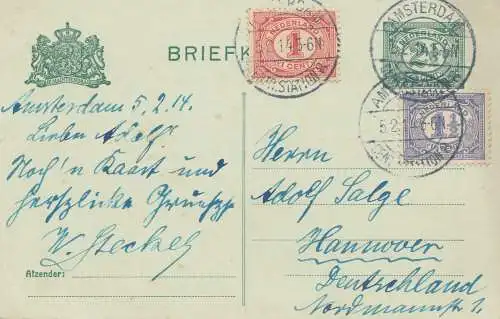 BRIEFK
AMSTERDAM
NEDERLAND
1
CENT
5.2.14.5-6N
CENTR.STATION
AMSTERDAM
2½
5.2
1½
CENTR.STATION
Amsterdam 5, 2. 14.
Lieber Adolf
Noch 'n Kaart und
herzliche Gruesse
W. Steckel
Afzender:
Herrn
Adolf Salge
Hannover
Deutschland
Nordmannstr 1.